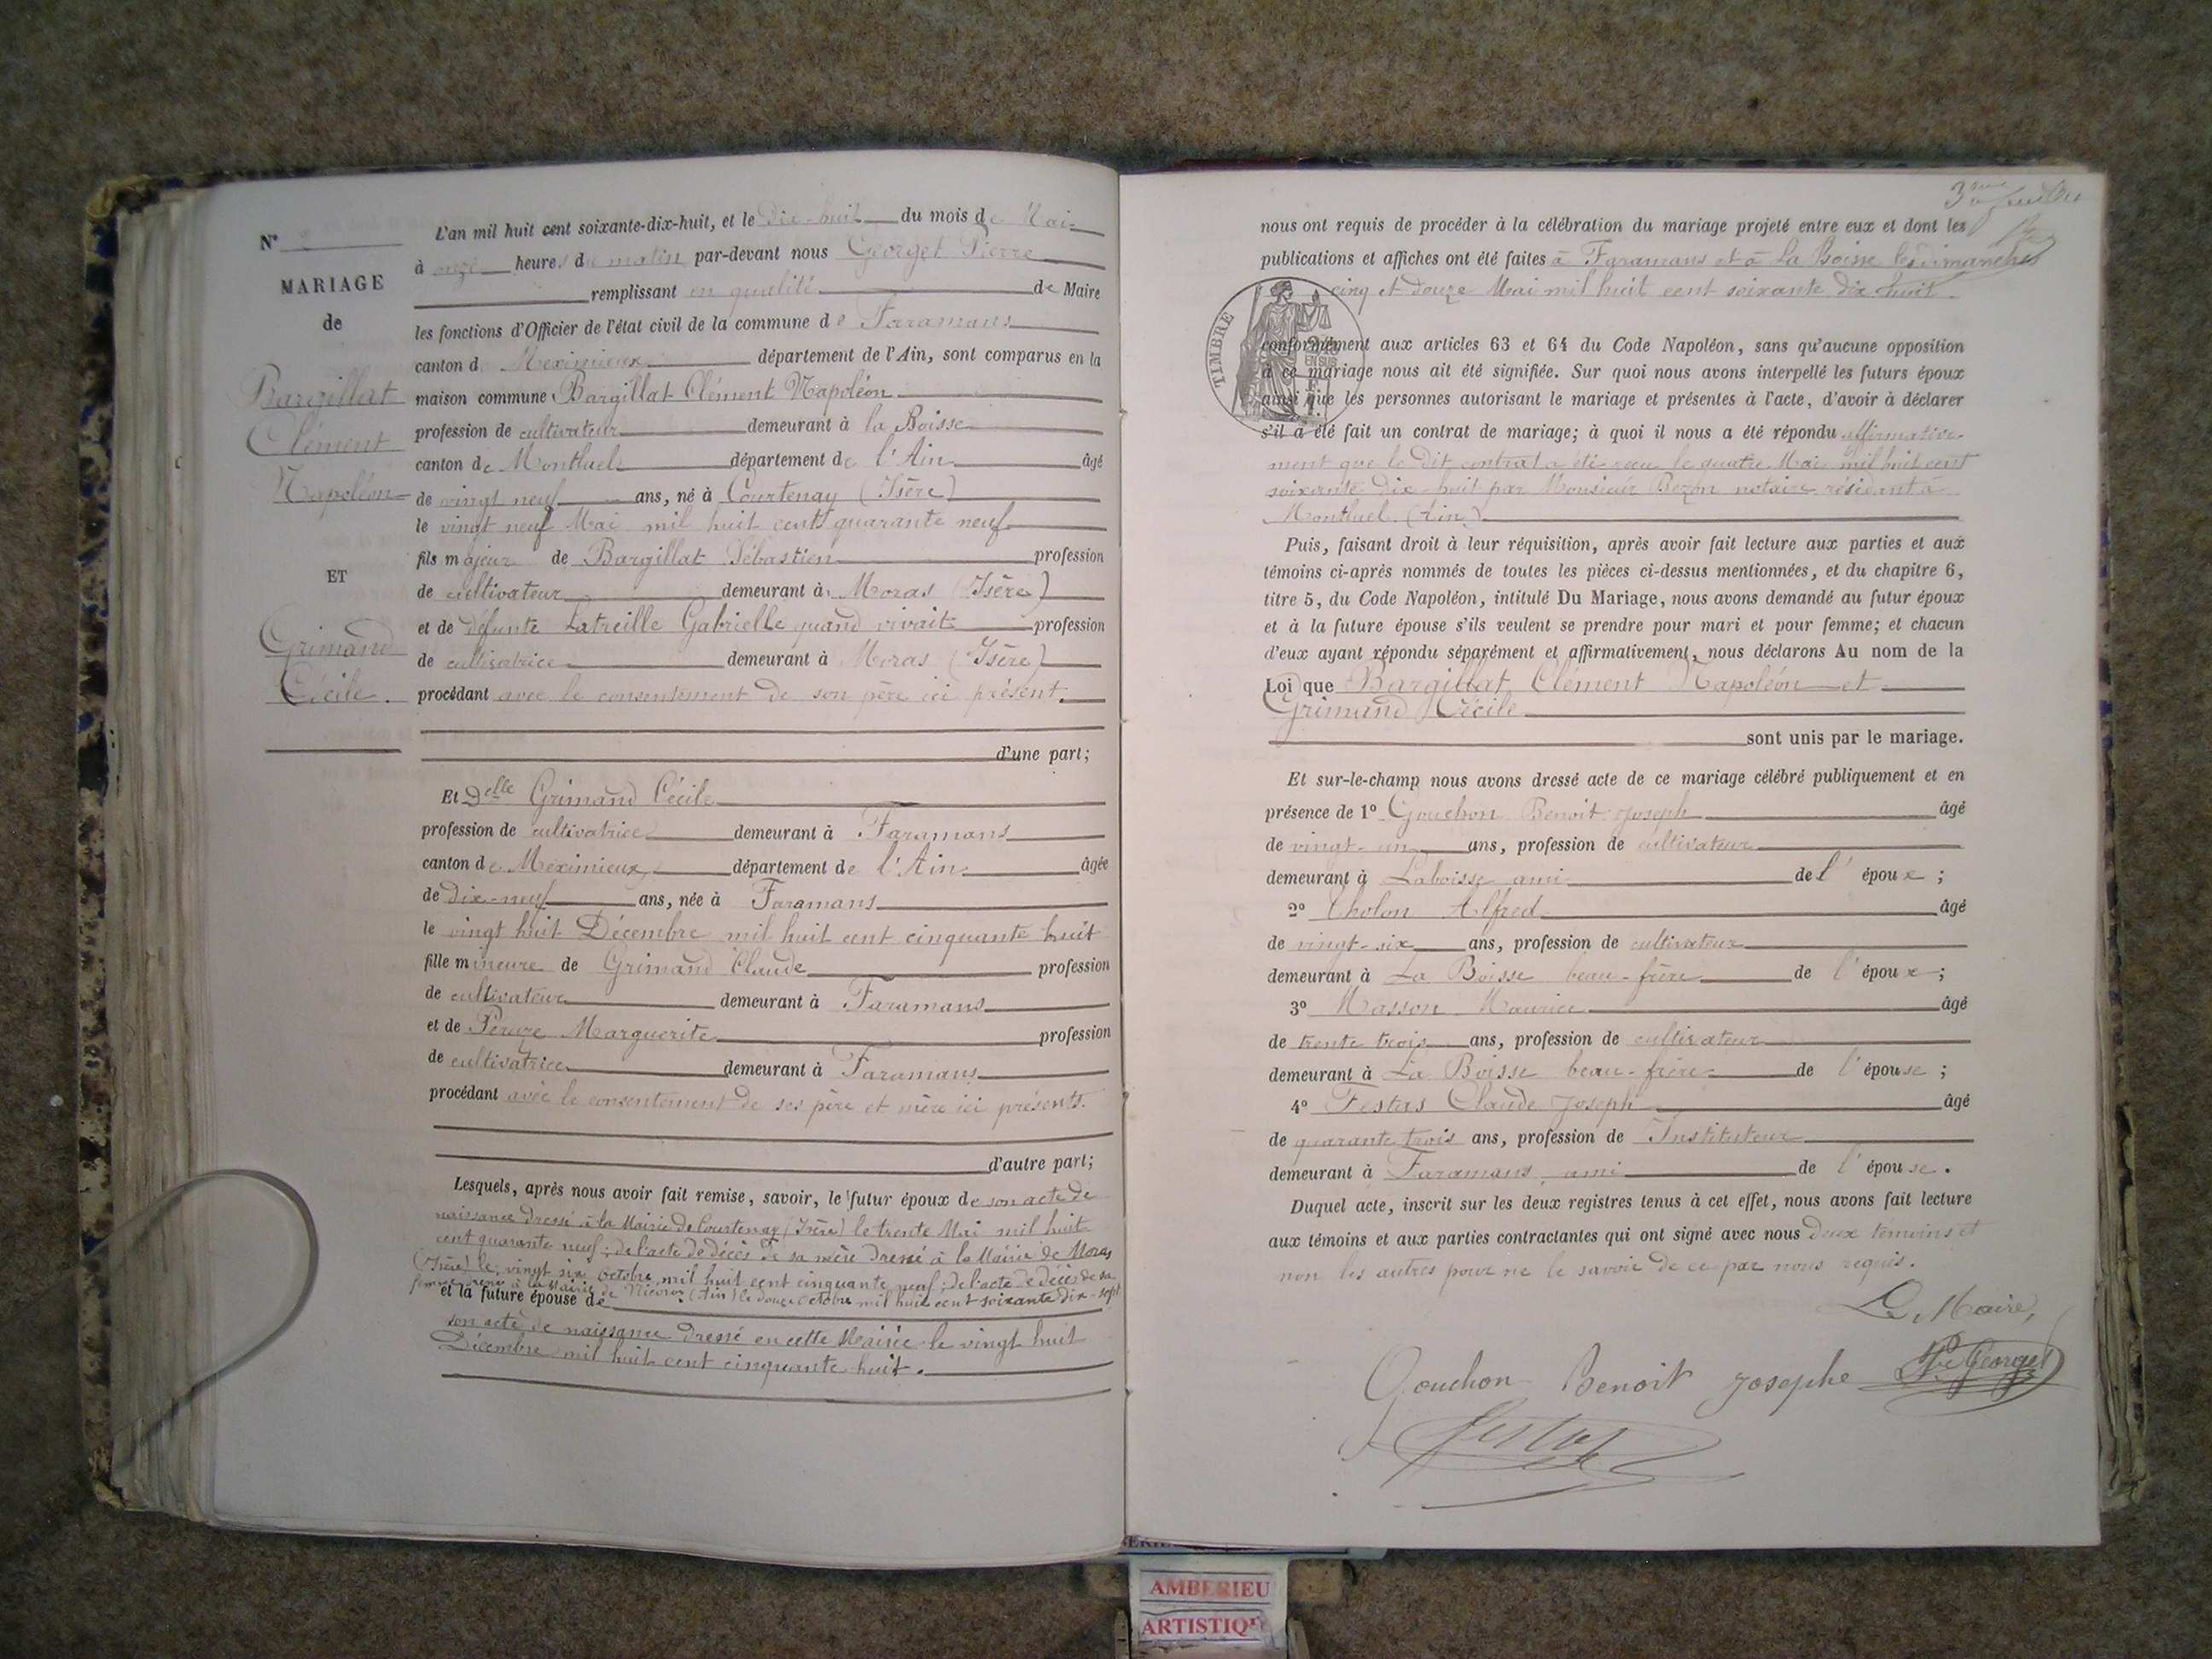 N°
MARIAGE
de
Bargillat
Clément
Napoléon
ET
Grimand
Cécile.
L'an mil huit cent soixante-dix-huit, et le dix-huit du mois de Mai
à onze heures du matin par-devant nous Georget Pierre
remplissant en qualité de Maire
les fonctions d'Officier de l'état civil de la commune de Faramans
canton de Meximieux département de l'Ain, sont comparus en la
maison commune Bargillat Clément Napoléon
profession de cultivateur demeurant à la Boisse
canton de Montluel département de l'Ain âgé
de vingt neuf ans, né à Courtenay (Isère)
le vingt neuf Mai mil huit cent quarante neuf
fils majeur de Bargillat Sébastien profession
de cultivateur demeurant à Moras (Isère)
et de défunte Latreille Gabrielle quand vivait profession
de cultivatrice demeurant à Moras (Isère)
procédant avec le consentement de son père ici présent.
d'une part;
Et Delle Grimand Cécile
profession de cultivatrice demeurant à Faramans
canton de Meximieux département de l'Ain âgée
de dix-neuf ans, née à Faramans
le vingt huit Décembre mil huit cent cinquante huit
fille mineure de Grimand Claude profession
de cultivateur demeurant à Faramans
et de Marguerite profession
de cultivatrice demeurant à Faramans
procédant avec le consentement de ses père et mère ici présents.
d'autre part;
Lesquels, après nous avoir fait remise, savoir, le futur époux de son acte de
naissance dressé à la Mairie de Courtenay (Isère) le trente Mai mil huit
cent quarante neuf; de l'acte de décès de sa mère dressé à la Mairie de Moras
(Isère) le vingt six Octobre mil huit cent cinquante neuf; de l'acte de décès de sa
femme dressé à la Mairie de (Ain) le douze Octobre mil huit cent soixante dix-sept
et la future épouse de
son acte de naissance dressé en cette Mairie le vingt huit
Décembre mil huit cent cinquante huit.
3me feuillet
nous ont requis de procéder à la célébration du mariage projeté entre eux et dont les
publications et affiches ont été faites à Faramans et à La Boisse les dimanches
cinq et douze Mai mil huit cent soixante dix huit
TIMBRE
EN SUS
conformément aux articles 63 et 64 du Code Napoléon, sans qu'aucune opposition
à ce mariage nous ait été signifiée. Sur quoi nous avons interpellé les futurs époux
ainsi que les personnes autorisant le mariage et présentes à l'acte, d'avoir à déclarer
s'il a été fait un contrat de mariage; à quoi il nous a été répondu affirmative-
ment que le dit contrat a été reçu le quatre Mai mil huit cent
soixante dix-huit par Monsieur Bozon notaire résidant à
Montluel (Ain)
Puis, faisant droit à leur réquisition, après avoir fait lecture aux parties et aux
témoins ci-après nommés de toutes les pièces ci-dessus mentionnées, et du chapitre 6,
titre 5, du Code Napoléon, intitulé Du Mariage, nous avons demandé au futur époux
et à la future épouse s'ils veulent se prendre pour mari et pour femme; et chacun
d'eux ayant répondu séparément et affirmativement, nous déclarons Au nom de la
Loi que Bargillat Clément Napoléon et
Grimand Cécile
sont unis par le mariage.
Et sur-le-champ nous avons dressé acte de ce mariage célébré publiquement et en
présence de 1° Gouchon Benoit Joseph âgé
de vingt-un ans, profession de cultivateur
demeurant à Laboisse ami de l'époux;
2° Cholon Alfred âgé
de vingt-six ans, profession de cultivateur
demeurant à La Boisse beau-frère de l'époux;
3° Masson Maurice âgé
de trente trois ans, profession de cultivateur
demeurant à La Boisse beau-frère de l'épouse;
4° Festas Claude Joseph âgé
de quarante trois ans, profession de Instituteur
demeurant à Faramans ami de l'épouse.
Duquel acte, inscrit sur les deux registres tenus à cet effet, nous avons fait lecture
aux témoins et aux parties contractantes qui ont signé avec nous deux témoins et
non les autres pour ne le savoir de ce par nous requis.
Le Maire,
Gouchon Benoit Josephe Pre Georget
Festas
AMBERIEU
ARTISTIQ